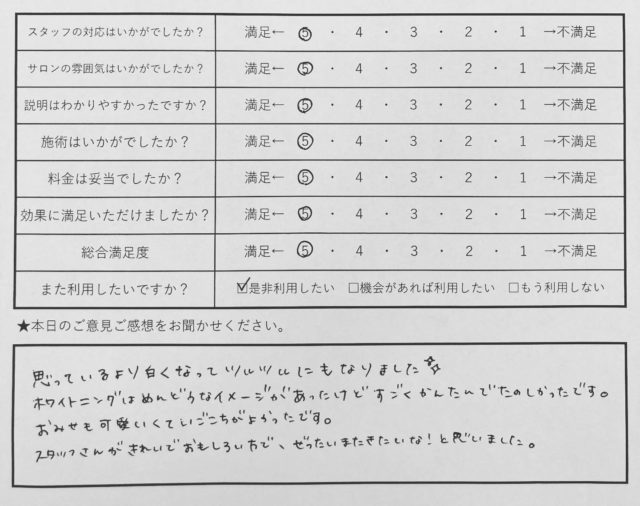 スタッフの対応はいかがでしたか？ 満足← 5 ・ 4 ・ 3 ・ 2 ・ 1 →不満足
サロンの雰囲気はいかがでしたか？ 満足← 5 ・ 4 ・ 3 ・ 2 ・ 1 →不満足
説明はわかりやすかったですか？ 満足← 5 ・ 4 ・ 3 ・ 2 ・ 1 →不満足
施術はいかがでしたか？ 満足← 5 ・ 4 ・ 3 ・ 2 ・ 1 →不満足
料金は妥当でしたか？ 満足← 5 ・ 4 ・ 3 ・ 2 ・ 1 →不満足
効果に満足いただけましたか？ 満足← 5 ・ 4 ・ 3 ・ 2 ・ 1 →不満足
総合満足度 満足← 5 ・ 4 ・ 3 ・ 2 ・ 1 →不満足
また利用したいですか？ ☑是非利用したい □機会があれば利用したい □もう利用しない
★本日のご意見ご感想をお聞かせください。
思っているより白くなってツルツルにもなりました
ホワイトニングはめんどうなイメージがあったけどすごくかんたんでたのしかったです。
おみせも可愛いくていごこちがよかったです。
スタッフさんがきれいでおもしろい方で、ぜったいまたきたいな！と思いました。